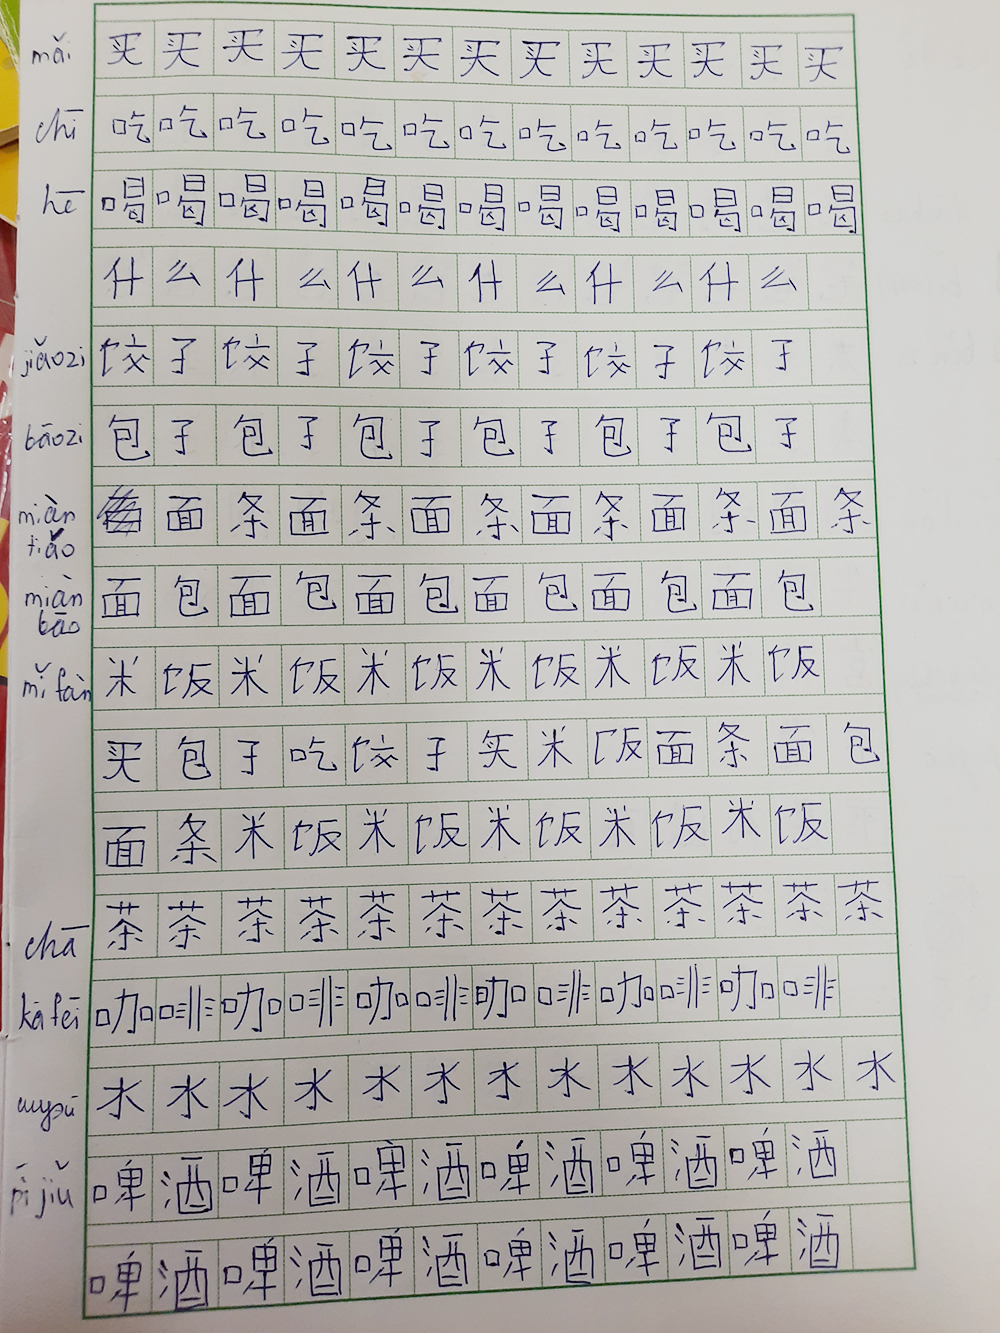 mǎi 买 买 买 买 买 买 买 买 买 买 买 买 买
chī 吃 吃 吃 吃 吃 吃 吃 吃 吃 吃 吃 吃 吃
hē 喝 喝 喝 喝 喝 喝 喝 喝 喝 喝 喝 喝 喝
什 么 什 么 什 么 什 么 什 么 什 么
jiǎozi 饺 子 饺 子 饺 子 饺 子 饺 子 饺 子
bāozi 包 子 包 子 包 子 包 子 包 子 包 子
miàn tiáo 面 条 面 条 面 条 面 条 面 条 面 条
miàn bāo 面 包 面 包 面 包 面 包 面 包 面 包
mǐ fàn 米 饭 米 饭 米 饭 米 饭 米 饭 米 饭
买 包 子 吃 饺 子 买 米 饭 面 条 面 包
面 条 米 饭 米 饭 米 饭 米 饭 米 饭
chā 茶 茶 茶 茶 茶 茶 茶 茶 茶 茶 茶 茶 茶
kā fēi 咖 啡 咖 啡 咖 啡 咖 啡 咖 啡 咖 啡
水 水 水 水 水 水 水 水 水 水 水 水 水
pí jiǔ 啤 酒 啤 酒 啤 酒 啤 酒 啤 酒 啤 酒
啤 酒 啤 酒 啤 酒 啤 酒 啤 酒 啤 酒